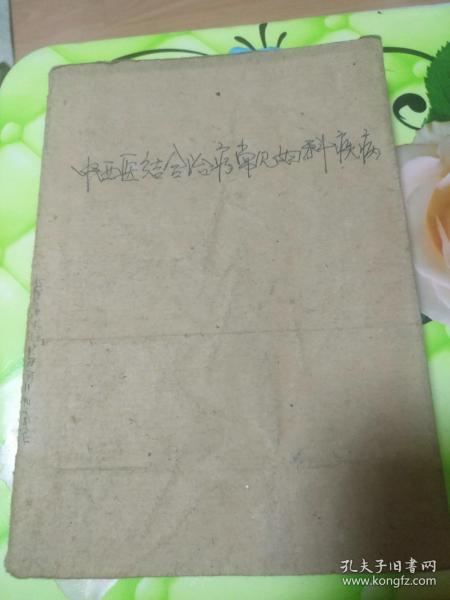 中西医结合治疗常见妇科疾病
孔夫子旧书网
www.kongfz.com